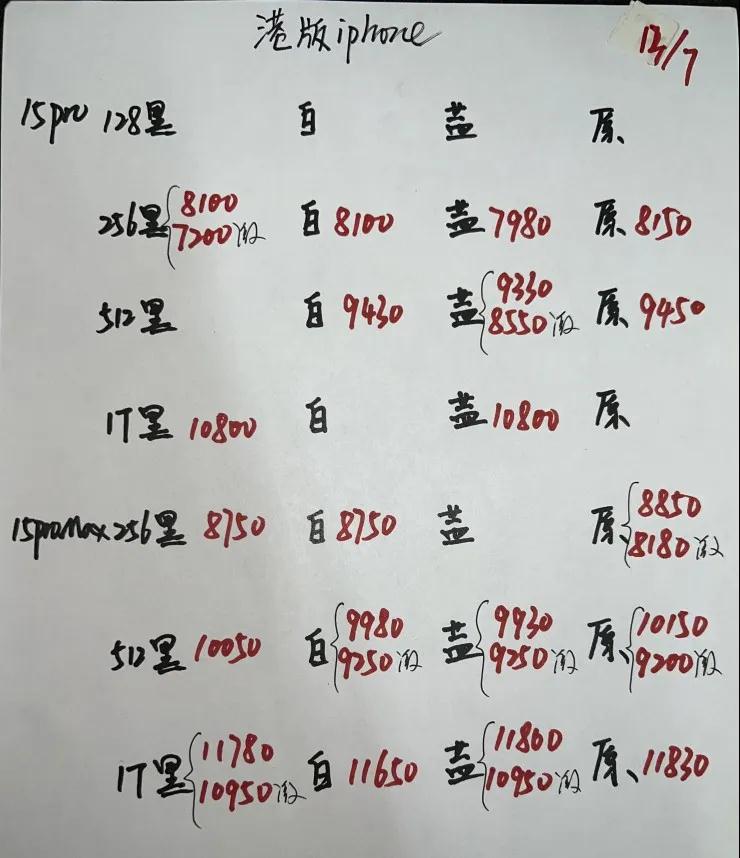 港版iphone
13/7
15pro 128黑 白 盖 原、
256黑 8100 白 8100 盖 7980 原、8150
7200激
512黑 白 9430 盖 9330 原、9450
8550激
1T黑 10800 白 盖 10800 原、
15proMax 256黑 8750 白 8750 盖 原、8850
8180激
512黑 10050 白 9980 盖 9930 原、10150
9250激 9250激 9200激
1T黑 11780 白 11650 盖 11800 原、11830
10950激 10950激